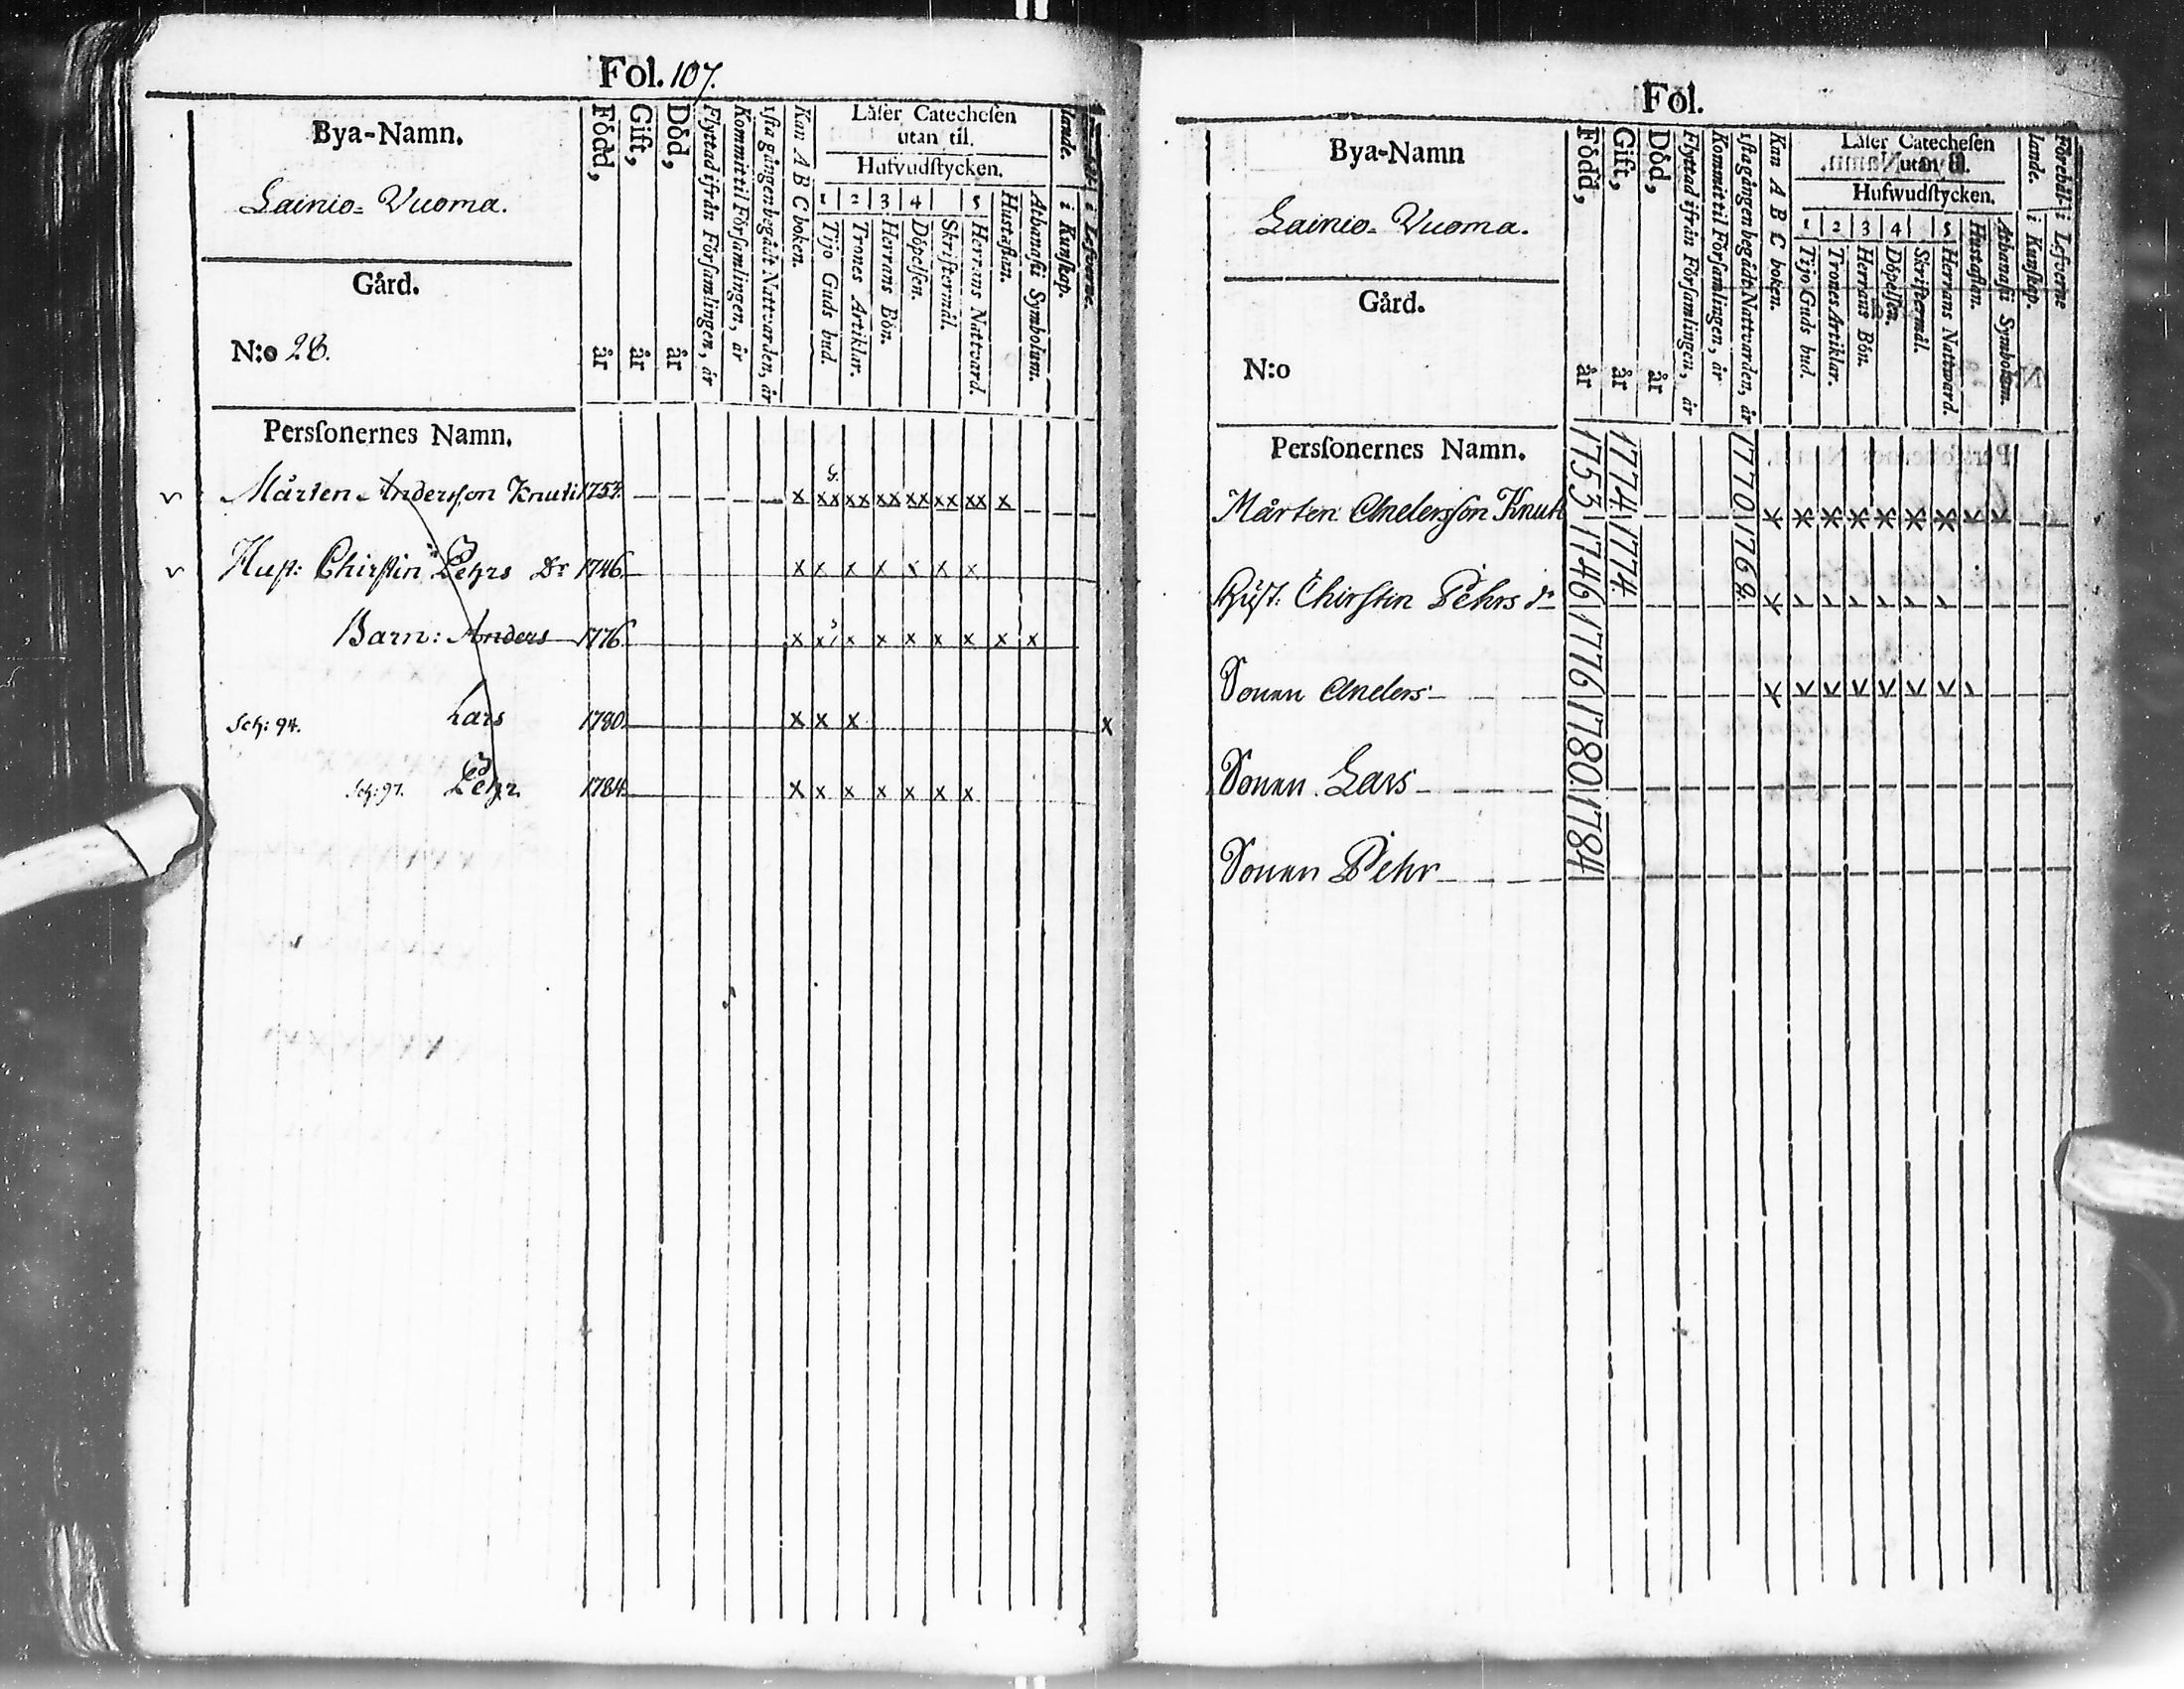 Fol. 107.
Bya-Namn.
Lainio-Vuoma.
Gård.
N:o 28.
Född, år
Gift, år
Död, år
Flyttad ifrån Församlingen, år
Kommit til Församlingen, år
1sta gången begådt Nattvarden, år
Kan A B C boken.
Låser Catechesen
utan til.
Hufvudstycken.
1 2 3 4 5
Tijo Guds bud.
Trones Artiklar.
Herrans Bön.
Döpelsen.
Skriftermål.
Herrans Nattvard.
Hustaflan.
Athanasii Symbolum.
lande. i Kunskap.
i Lefverne.
Perssonernes Namn.
v Mårten Andersson Knuti 1753. — — — — x xx xx xx xx xx xx x
v Hust: Chirstin Pehrs Dr 1746. x x x x x x x
Barn: Anders 1776. x x x x x x x x x
Sch: 94. Lars 1780. x x x x
Sch: 97. Pehr 1784. x x x x x x x
Fol.
Bya-Namn
Lainio-Vuoma.
Gård.
N:o
Född, år
Gift, år
Död, år
Flyttad ifrån Församlingen, år
Kommit til Församlingen, år
1sta gången begådt Nattvarden, år
Kan A B C boken.
Låser Catechesen
utan til.
Hufwudstycken.
1 2 3 4 5
Tijo Guds bud.
Trones Artiklar.
Herrans Bön.
Döpelsen.
Skriftermål.
Herrans Nattward.
Hustaflan.
Athanasii Symbolum.
Förehållande. i Kunskap.
i Lefverne
Perssonernes Namn.
Mårten Andersson Knuti 1753 1774. 1770 x x x x x x x x x
Hust. Chirstin Pehrs dr 1746 1774. 1768.
Sonen Anders 1776
Sonen Lars 1780
Sonen Pehr 1784